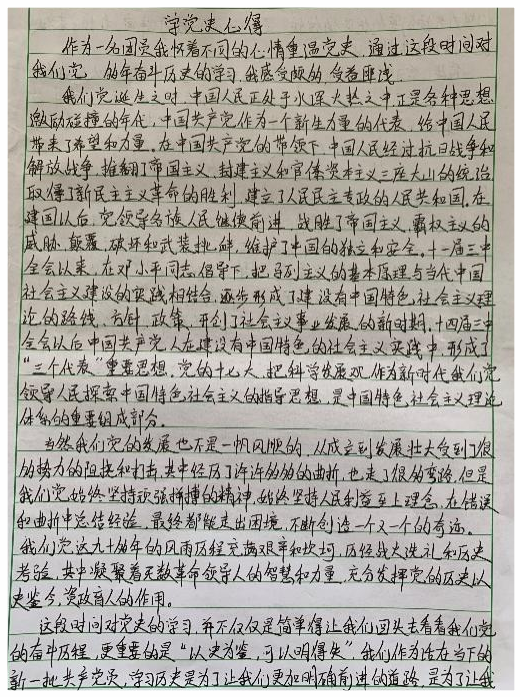 学党史心得
作为一名团员我怀着不同的心情重温党史,通过这段时间对
我们党 的年奋斗历史的学习,我感受颇的 受益匪浅
我们党诞生之时,中国人民正处于水深火热之中,正是各种思想
激励碰撞的年代,中国共产党作为一个新生力量的代表,给中国人民
带来了希望和力量。在中国共产党的带领下,中国人民经过抗日战争和
解放战争,推翻了帝国主义,封建主义和官僚资本主义三座大山的统治
取得了新民主主义革命的胜利,建立了人民民主专政的人民共和国。在
建国以后,党领导各族人民继续前进,战胜了帝国主义,霸权主义的
威胁,颠覆,破坏和武装挑衅,维护了中国的独立和安全。十一届三中
全会以来,在邓小平同志倡导下,把马列主义的基本原理与当代中国
社会主义建设的实践相结合,逐步形成了建设有中国特色社会主义理
论的路线,方针,政策,开创了社会主义事业发展的新时期。十四届三中
全会以后中国共产党人在建设有中国特色的社会主义实践中,形成了
“三个代表”重要思想。党的十七大,把科学发展观作为新时代我们党
领导人民探索中国特色社会主义的指导思想,是中国特色社会主义理论
体系的重要组成部分。
当然我们党的发展也不是一帆风顺的,从成立到发展壮大受到了很
的势力的阻挠和打击,其中经历了许许多多的曲折,也走了很多弯路,但是
我们党始终坚持顽强拼搏的精神,始终坚持人民利益至上理念,在错误
和曲折中总结经验,最终都能走出困境,不断创造一个又一个的奇迹。
我们党这九十多年的风雨历程充满艰辛和坎坷,历经战火洗礼和历史
考验,其中凝聚着无数革命领导人的智慧和力量,充分发挥党的历史以
史鉴今,资政育人的作用。
这段时间对党史的学习,并不仅仅是简单得让我们回头去看看我们党
的奋斗历程,更重要的是“以史为鉴,可以明得失”我们作为活在当下的
新一批共产党员,学习历史是为了让我们更加明确前进的道路,是为了让我